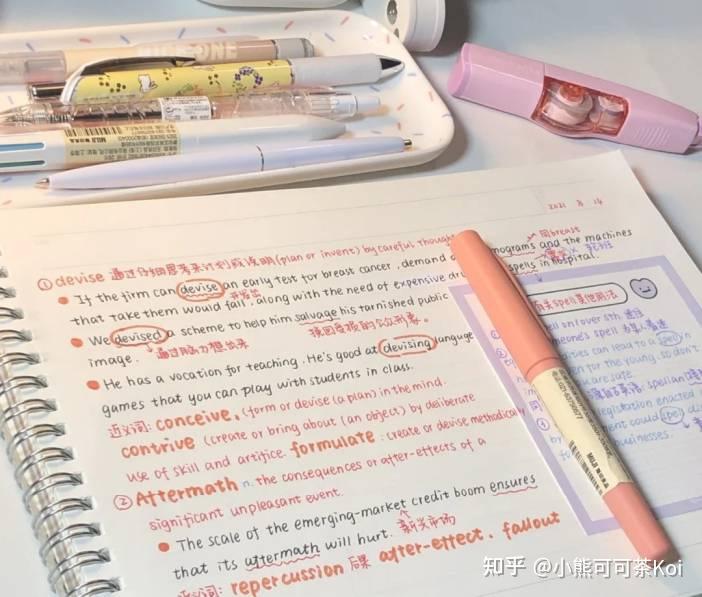 NICE ONE
MUJ
2021 8 14
① devise 通过仔细思考来计划或发明(plan or invent) by careful though
同breast
If the firm can devise an early test for breast cancer, demand mograms and the machines
开发出
that take them would fall, along with the need of expensive dr spells in hospital.
We devised a scheme to help him salvage his tarnished public
通过脑力想出来
挽回受损的公众形象。
image.
He has a vocation for teaching. He's good at devising languge
games that you can play with students in class.
近义词: conceive, (form or devise (a plan) in the mind.
contrive (create or bring about (an object) by deliberate
use of skill and artifice. formulate: create or devise methodically
② Aftermath n. the consequences or after-effects of a
significant unpleasant event.
The scale of the emerging-market credit boom ensures
新兴市场
that its aftermath will hurt.
近义词: repercussion 后果 after-effect. fallout
spell on
omeone's spell
ities can lead to a spell n
en for the young, so don't
are safe.
egislation enacted
could spell dis
businesses.
MUJI
知乎 @小熊可可茶Koi